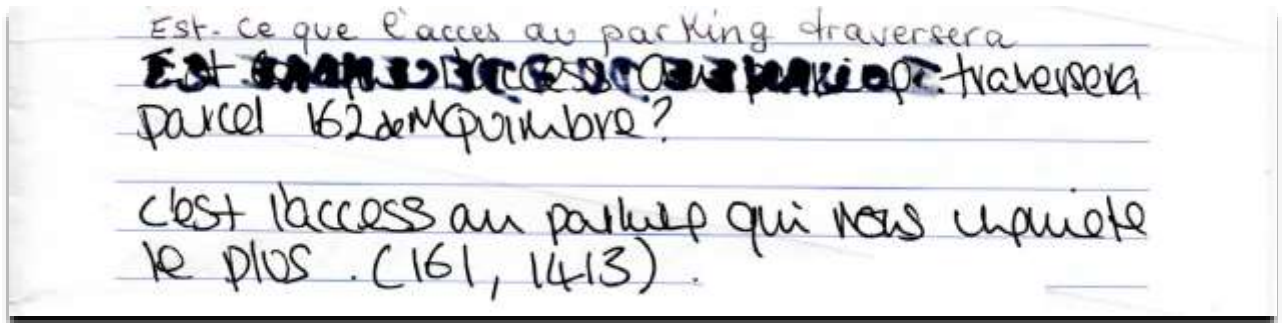 Est-ce que l'acces au parking traversera
Est l'access au parking traversera
parcel 162 de M Quimbre?
c'est l'access au parking qui nous inquiete
le plus. (161, 1413).